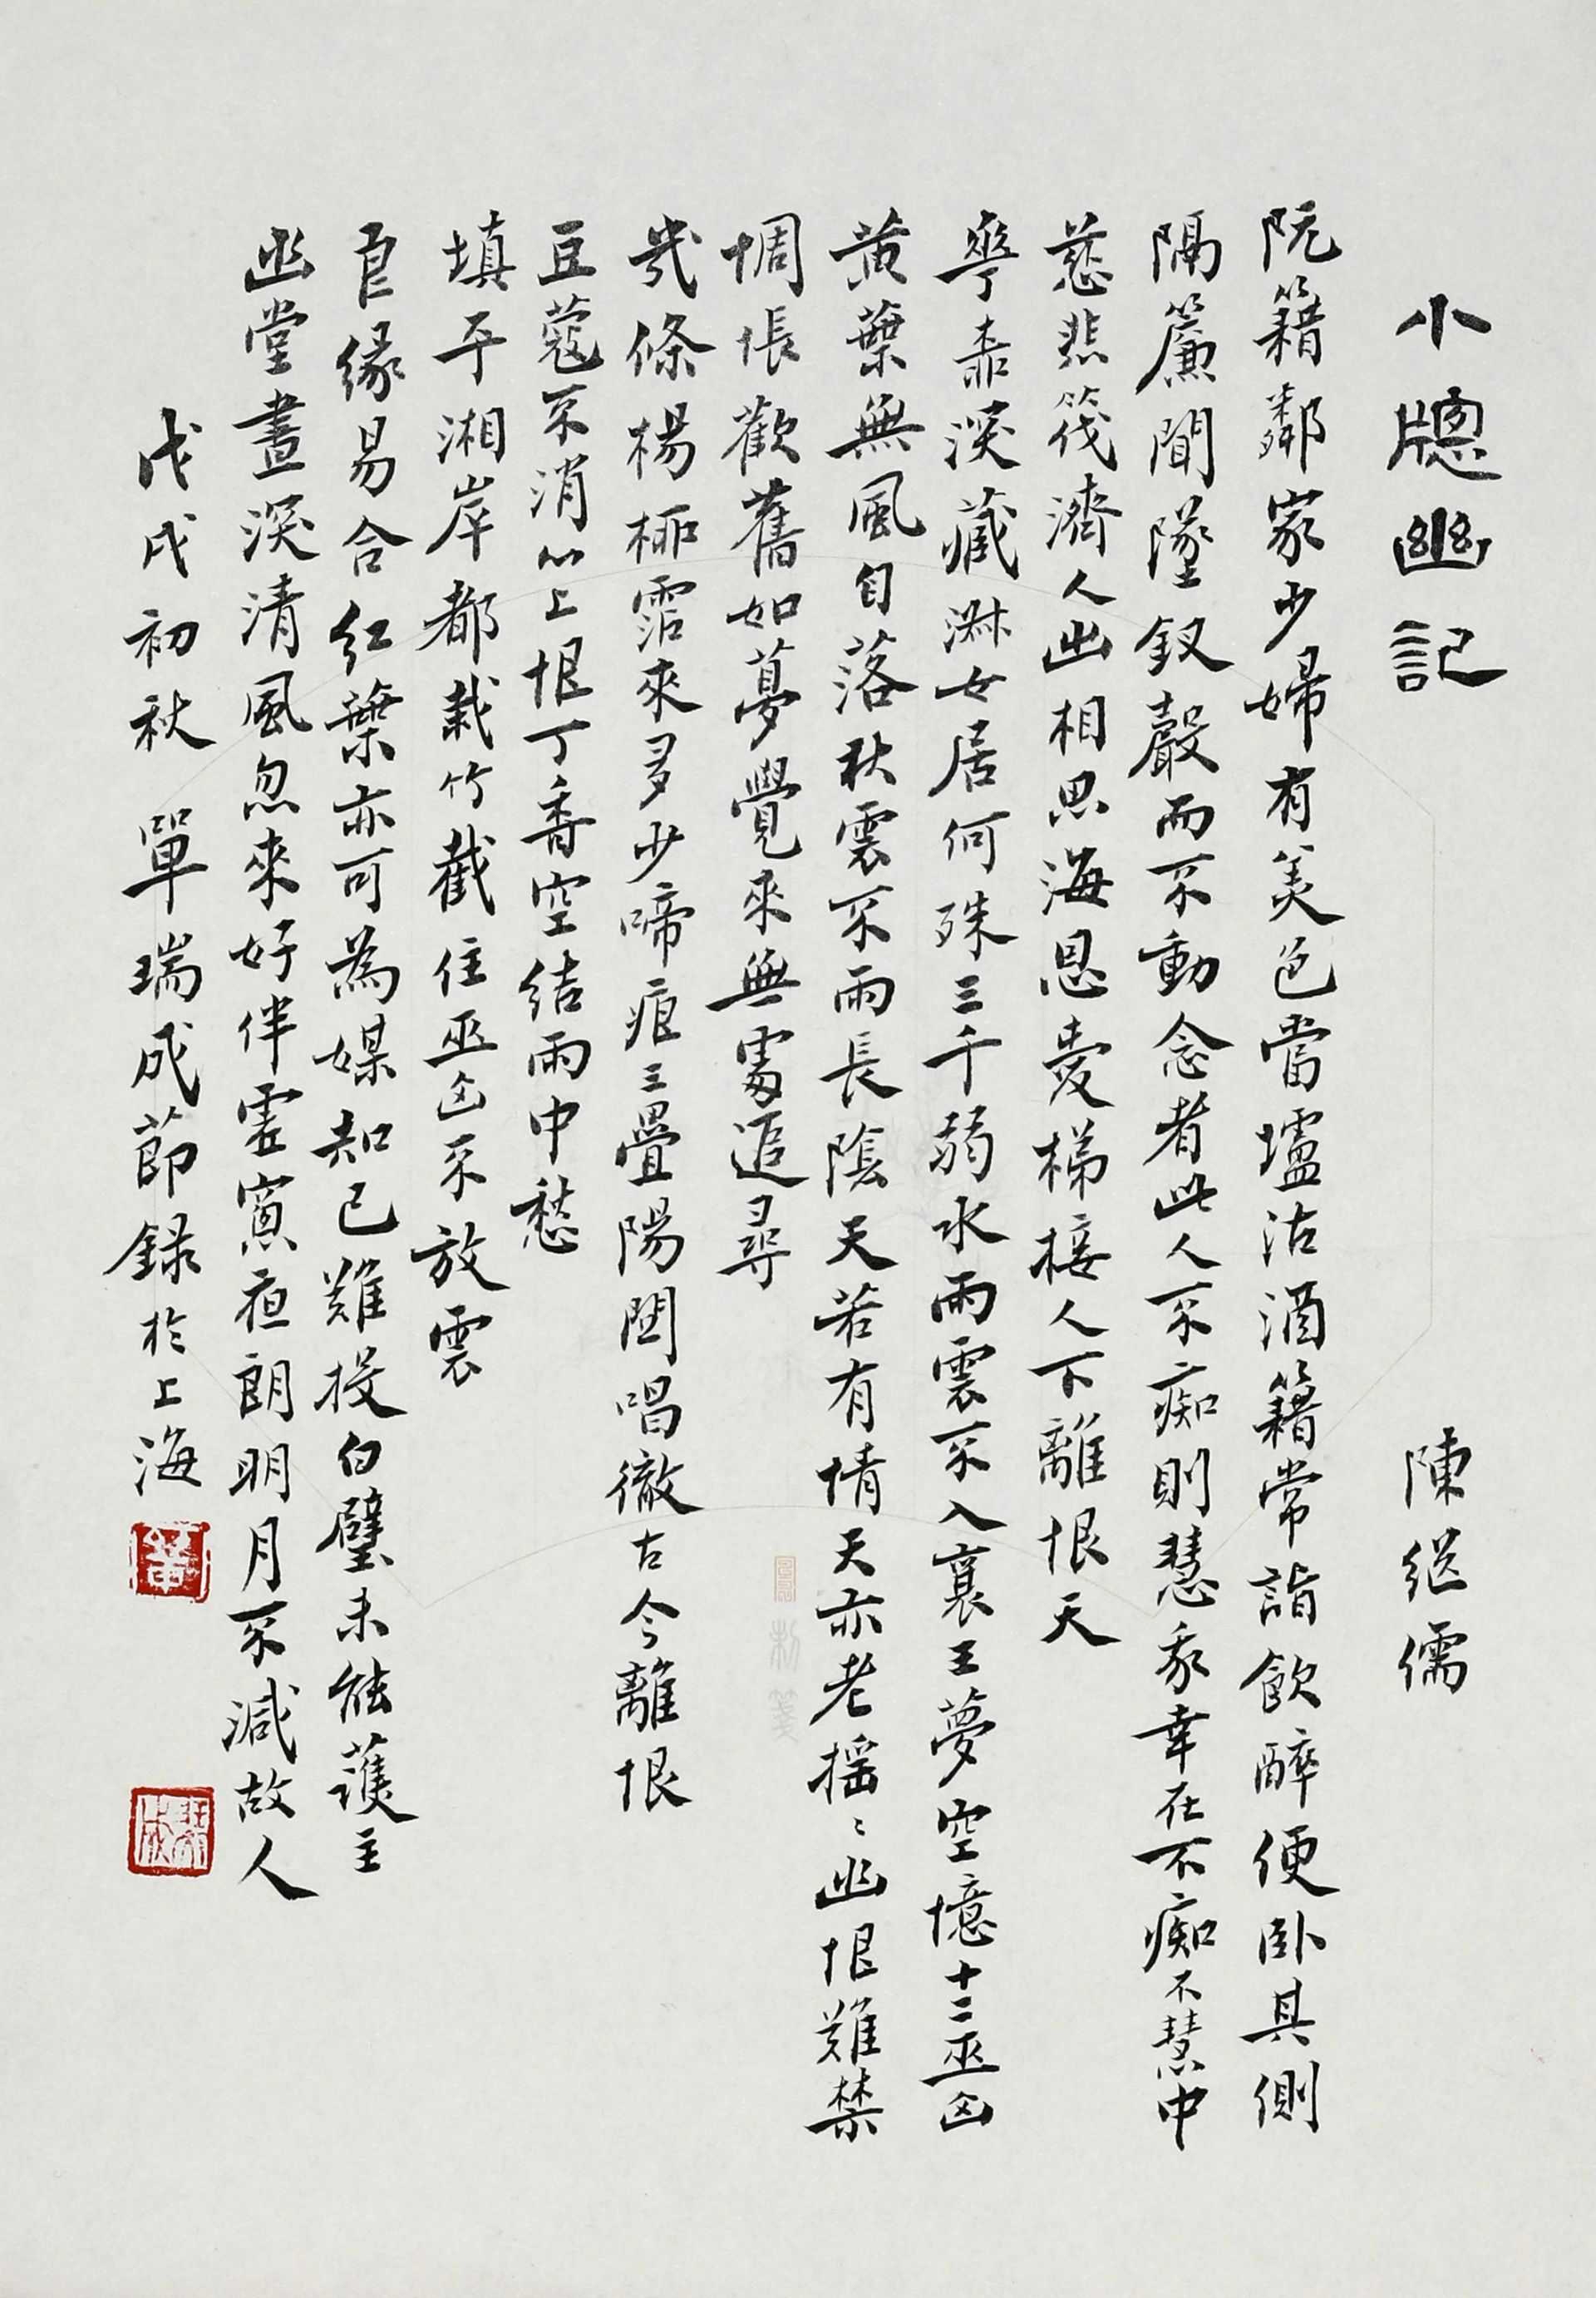 小牕幽記 陳继儒
阮籍鄰家少婦有美色當壚沽酒籍常詣飲醉便卧其側
隔簾聞墜釵聲而不動念者此人不痴則慧我幸在不痴不慧中
慈悲筏濟人出相思海恩愛梯接人下離恨天
花柰深藏淑女居何殊三千弱水雨雲不入襄王夢空憶十二巫山
黄葉無風自落秋雲不雨長陰天若有情天亦老摇〻幽恨難禁
惆悵歡舊如夢覺來無處追尋
幾條楊柳霑來多少啼痕三疊陽關唱徹古今離恨
豆蔻不消心上恨丁香空結雨中愁
填平湘岸都栽竹截住巫山不放雲
良缘易合红葉亦可為媒知己難投白璧未能護主
幽堂晝深清風忽來好伴虚窗夜朗明月不減故人
戊戌初秋 單瑞成節録於上海